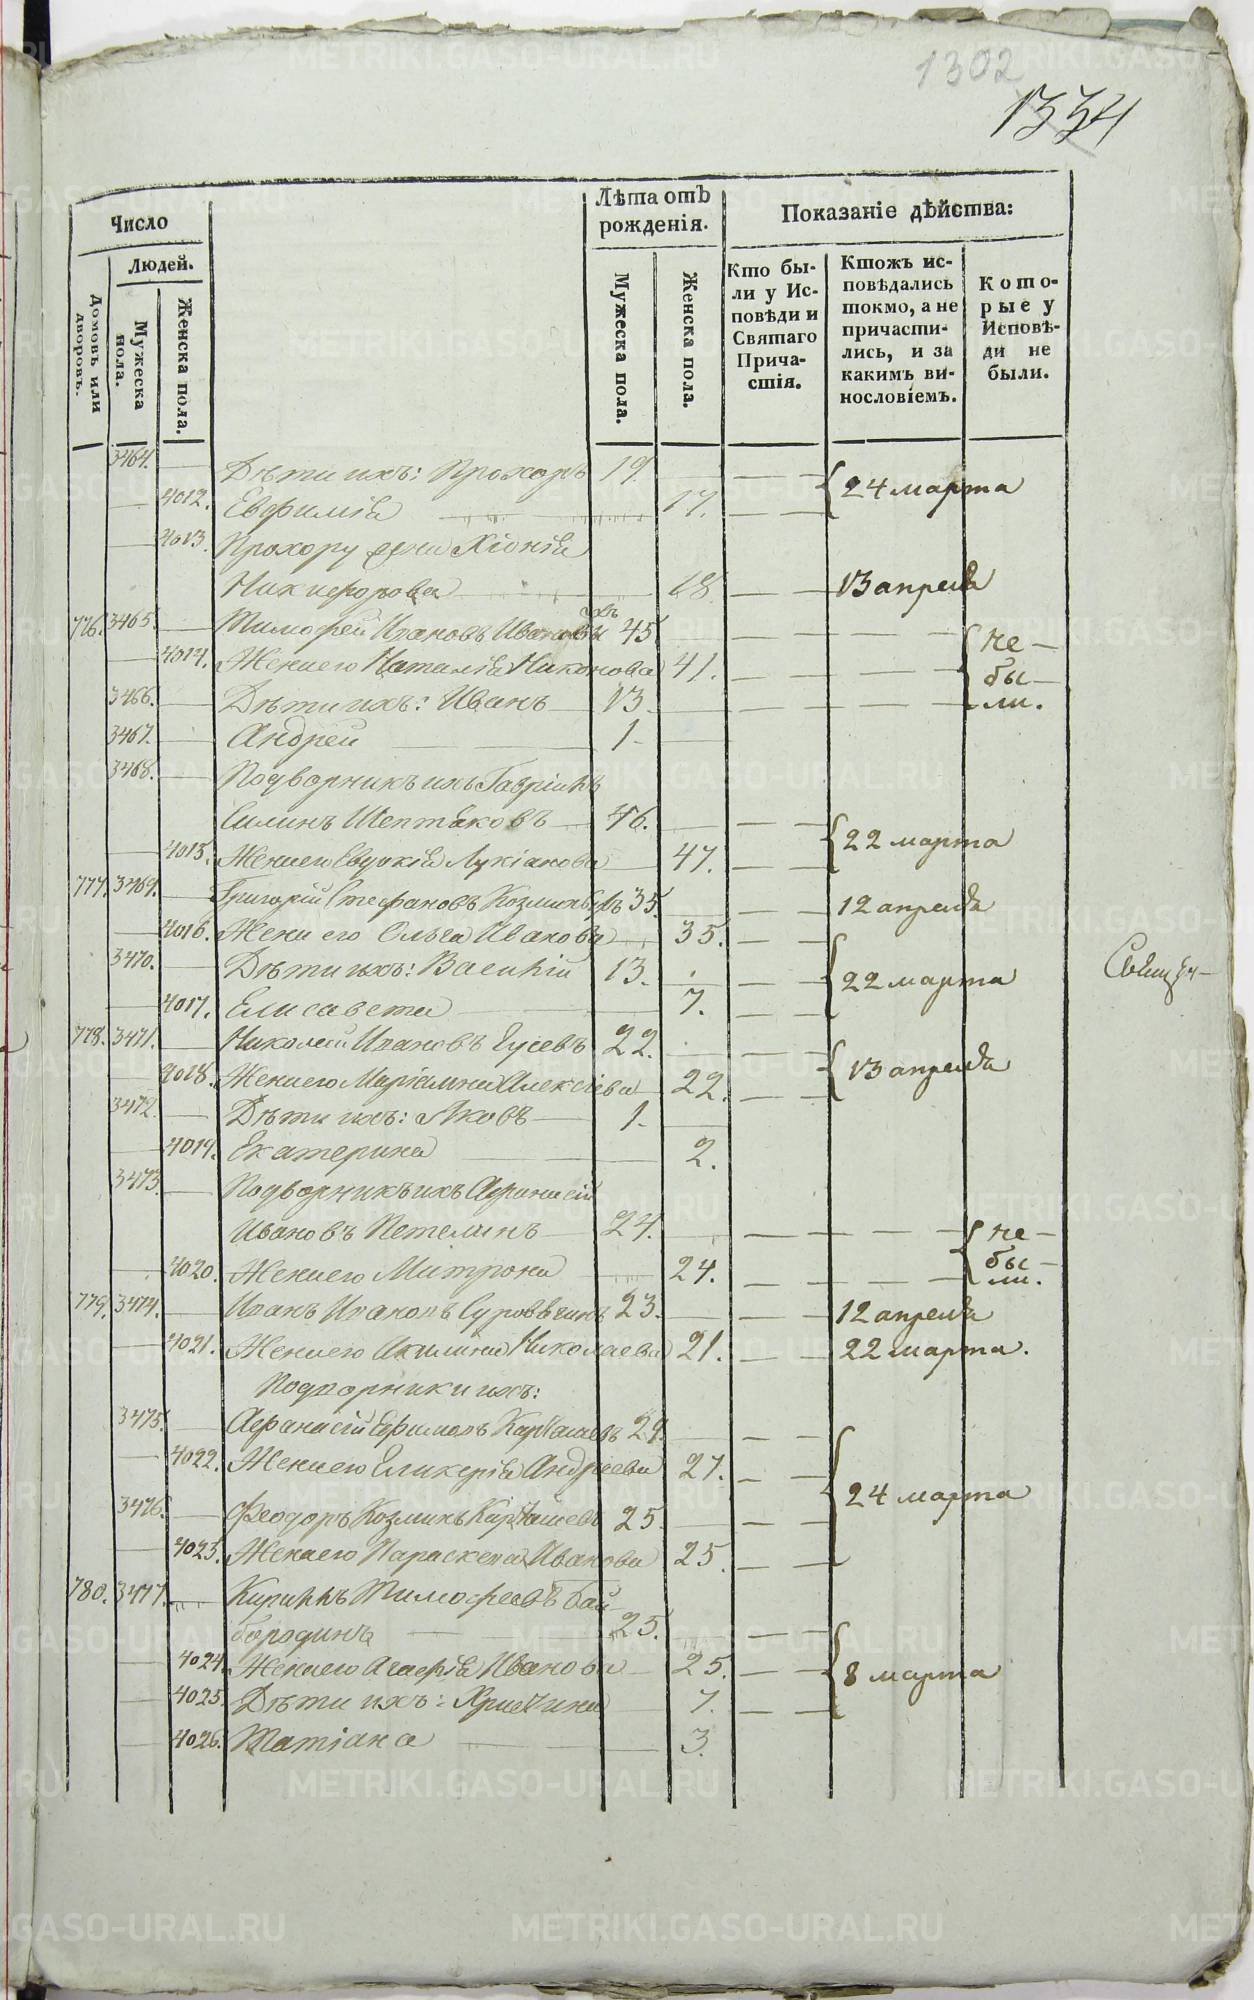 1302
1334
Число
Людей.
Домовъ или дворовъ.
Мужеска пола.
Женска пола.
Лѣта отъ рожденія.
Мужеска пола.
Женска пола.
Показаніе дѣйства:
Кто бы-
ли у Ис-
повѣди и
Святаго
Прича-
стія.
Ктожъ ис-
повѣдались
токмо, а не
причасти-
лись, и за
какимъ ви-
нословіемъ.
Кото-
рые у
Исповѣ-
ди не
были.
3464. Дѣти ихъ: Прохоръ 19. 24 марта
4012. Евфимія 17.
4013. Прохору жена Хіонія
Никифорова 18 13 апреля
776. 3465. Тимофей Ивановъ 45 не
4014. Жена его Наталія Никонова 41. бы
3466. Дѣти ихъ: Иванъ 13. ли.
3467. Андрей 1
3468. Подворникъ ихъ Гавріилъ
Силинъ 46. 22 марта
4015. Жена его Евдокія Лукіанова 47.
777. 3469. Григорій Стефановъ 35 12 апреля
4016. Жена его Ольга Иванова 35.
3470. Дѣти ихъ: Василій 13. 22 марта
4017. Елисавета 7.
778. 3471. Николай Ивановъ Гусевъ 22.
4018. Жена его Маріамна Алексіева 22. 13 апреля
3472. Дѣти ихъ: Яковъ 1.
4019. Екатерина 2.
3473. Подворникъ ихъ Афанасій
Ивановъ Петелинъ 24. не
4020. Жена его Митрона 24. бы
ли.
779. 3474. Иванъ Ивановъ 23. 12 апреля
4021. Жена его Акилина Николаева 21. 22 марта.
Подворники ихъ:
3475. Афанасій Ефимовъ Карташевъ 29.
4022. Жена его Гликерія Андреева 27.
24 марта
3476. Феодоръ Козминъ Карташевъ 25.
4023. Жена его Параскева Иванова 25.
780. 3477. Кириллъ Тимофеевъ Бай-
бородинъ 25.
4024. Жена его Агафія Иванова 25. 8 марта
4025. Дѣти ихъ: Христина 7.
4026. Татіана 3.
METRIKI.GASO-URAL.RU